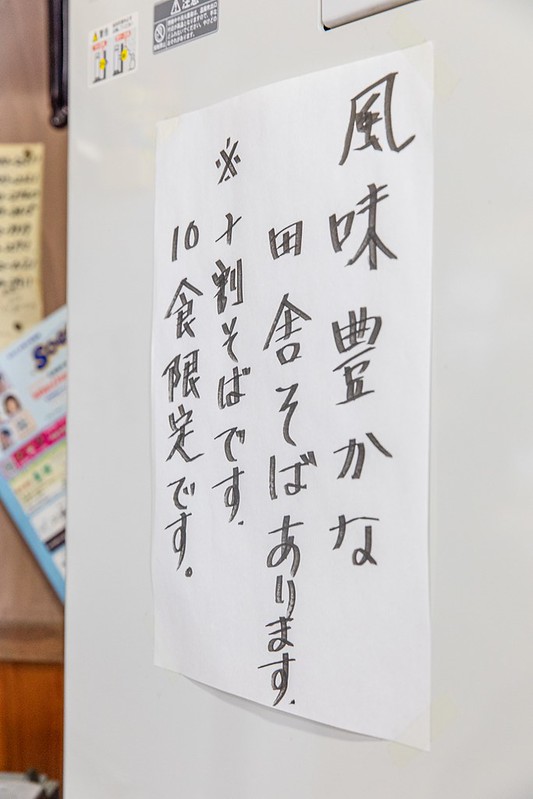 風味豊かな
田舎そばあります.
※十割そばです.
10食限定です。
注意
警告